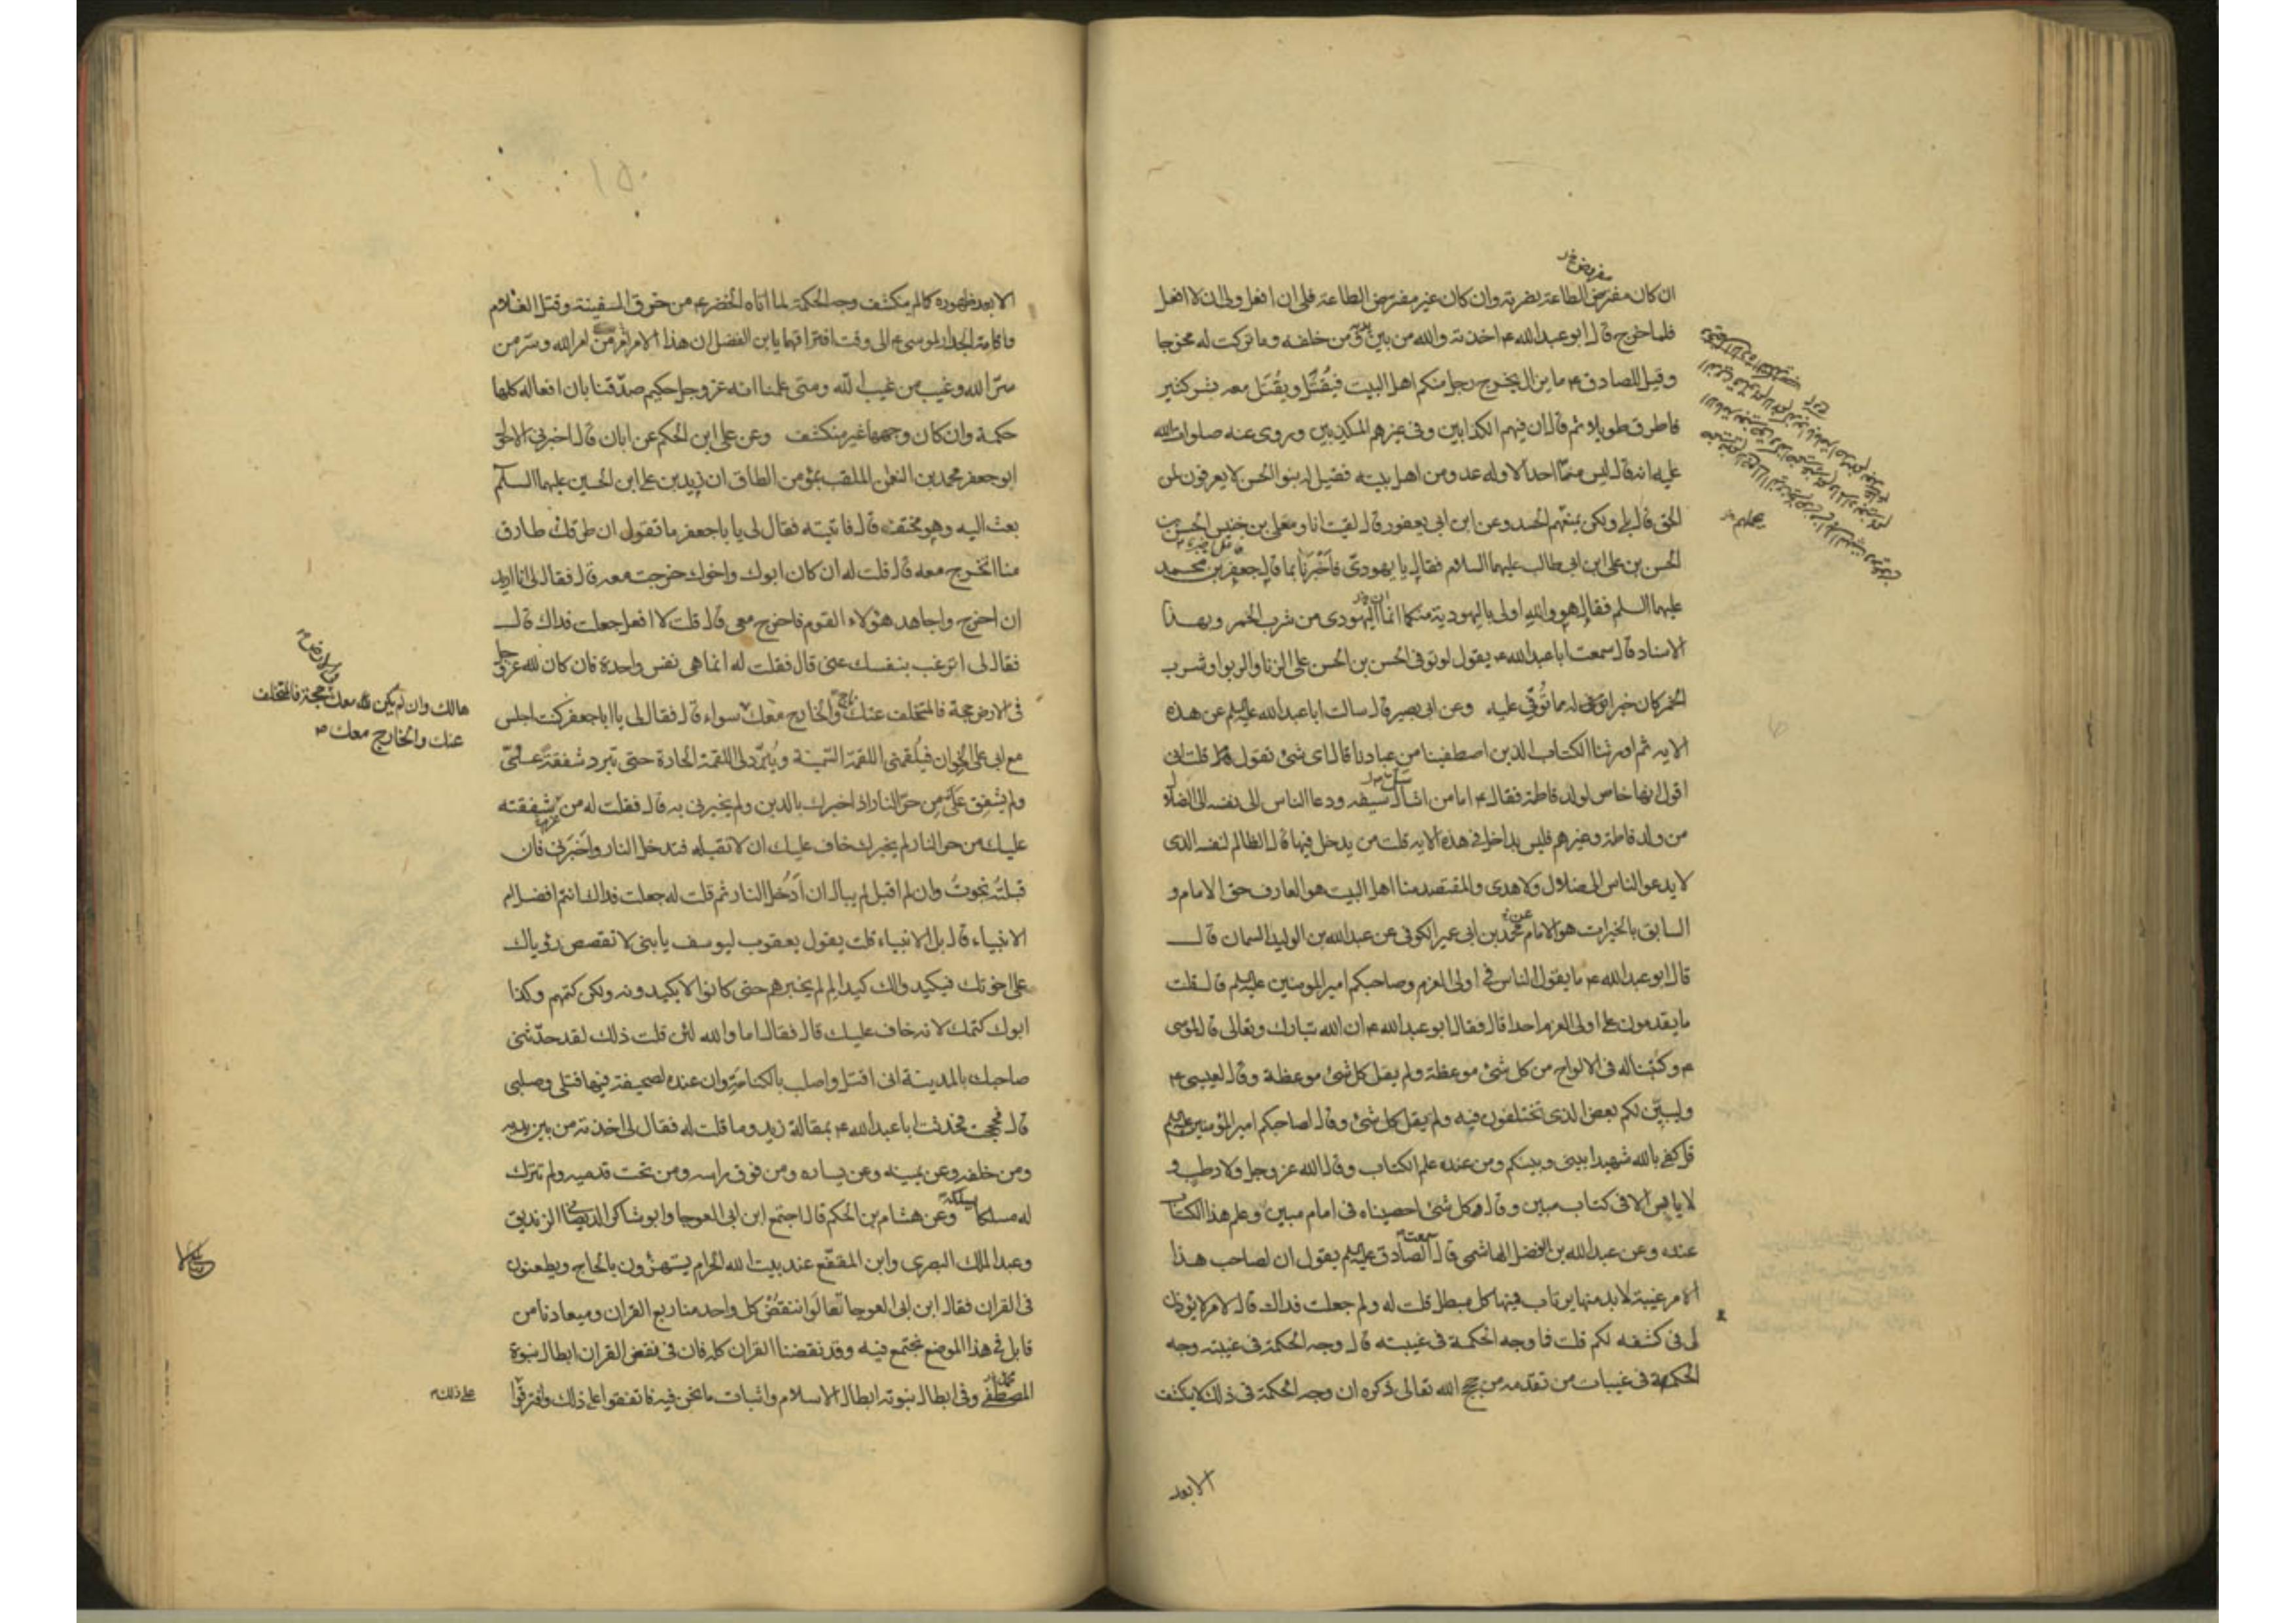 مفروض خ ر
ان كان مفترض الطاعة بضربته وان كان غير مفترض الطاعة فلى ان افعل ولى ان لا افعل
فلما خرج قال ابو عبد الله ع اخذته والله من بين يديه ومن خلفه وما تركت له مخرجا
وقيل للصادق ع ما يزال يخرج رجل منكم اهل البيت فيُقتَل ويُقتَل معه بشر كثير
فاطرق طويلا ثم قال ان فيهم الكذابين وفى غيرهم المكذبين وروى عنه صلوات الله
عليه انه قال ليس منّا احد الا وله عدو من اهل بيته فقيل له بنو الحسن لا يعرفون لمن
الحق قال بلى ولكن يمنعهم الحسد وعن ابن ابى يعفور قال لقيت انا ومعلى بن خنيس الحسن بن
الحسن بن على ابن ابى طالب عليهما السلام فقال يا يهودىّ فاخبرنا بما قال جعفر بن محمد
عليهما السلم فقال هو والله اولى باليهودية منكما انما اليهودى من شرب الخمر وبهذا
الاسناد قال سمعت ابا عبد الله ع يقول لو توفى الحسن بن الحسن على الزنا والربوا وشرب
الخمر كان خيرا له مما تُوفّى عليه وعن ابى بصير قال سالت ابا عبد الله عليه السلم عن هذه
الايه ثم اورثنا الكتاب الذين اصطفينا من عبادنا قال اى شئ تقول قلت انى
اقول انها خاص لولد فاطمة فقال ع اما من اشال سيفه ودعا الناس الى نفسه الى الضلال
من ولد فاطمة وغيرهم فليس بداخل فى هذه الايه قلت من يدخل فيها قال الظالم لنفسه الذى
لا يدعو الناس الى ضلال ولا هدى والمقتصد منا اهل البيت هو العارف حق الامام و
السابق بالخيرات هو الامام عن محمد بن ابى عمير الكوفى عن عبد الله بن الوليد السمان قال
قال ابو عبد الله ع ما يقول الناس فى اولى العزم وصاحبكم امير المومنين عليه السلم قال قلت
ما يقدمون على اولى العزم احدا قال فقال ابو عبد الله ع ان الله تبارك وتعالى قال لموسى
ع وكتبنا له فى الالواح من كل شئ موعظة ولم يقل كل شئ موعظة وقال لعيسى ع
وليبيّن لكم بعض الذى تختلفون فيه ولم يقل كل شئ وقال لصاحبكم امير المؤمنين عليه السلم
قل كفى بالله شهيدا بينى وبينكم ومن عنده علم الكتاب وقال الله عز وجل ولا رطب و
لا يابس الا فى كتاب مبين وقال وكل شئ احصيناه فى امام مبين وعلم هذا الكتاب
عنده وعن عبد الله بن الفضل الهاشمى قال سمعت الصادق عليه السلم يقول ان لصاحب هذا
الامر غيبة لا بد منها يرتاب فيها كل مبطل قلت له ولم جعلت فداك قال لامر لا يؤذن
لى فى كشفه لكم قلت فما وجه الحكمة فى غيبته قال وجه الحكمة فى غيبته وجه
الحكمة فى غيبات من تقدمه من حجج الله تعالى ذكره ان وجه الحكمة فى ذلك لا ينكشف
الا بعد
الا بعد ظهوره كما لم ينكشف وجه الحكمة لما اتاه الخضر ع من خرق السفينة وقتل الغلام
واقامة الجدار لموسى ع الى وقت افتراقهما يا ابن الفضل ان هذا الامر امر من امر الله وسرّ من
سرّ الله وغيب من غيب الله ومتى علمنا انه عز وجل حكيم صدّقنا بان افعاله كلها
حكمة وان كان وجهها غير منكشف وعن على ابن الحكم عن ابان قال اخبرنى الاحول
ابو جعفر محمد بن النعمن الملقب بمؤمن الطاق ان زيد بن على ابن الحسين عليهما السلم
بعث اليه وهو مختف قال فاتيته فقال لى يا با جعفر ما تقول ان طرقك طارق
منا اتخرج معه قال قلت له ان كان ابوك واخوك خرجت معه قال فقال لى انا اريد
ان اخرج واجاهد هؤلاء القوم فاخرج معى قال قلت لا افعل جعلت فداك قال
فقال لى اترغب بنفسك عنى قال فقلت له انما هى نفس واحدة فان كان لله عز وجل
فى الارض حجة فالمتخلف عنك ناج والخارج معك سواء قال فقال لى يا ابا جعفر كنت اجلس
هالك وان لم يكن لله معك حجة فالمتخلف
عنك والخارج معك
مع ابى على الخوان فيلقمنى اللقمة السمينة ويُبرّد لى اللقمة الحارة حتى تبرد شفقة علىّ
ولم يشفق علىّ من حرّ النار اذا اخبرك بالدين ولم يخبرنى به قال فقلت له من شفقته
عليك من حر النار لم يخبرك خاف عليك ان لا تقبله فتدخل النار واخبرنى فان
قبلتُه نجوتُ وان لم اقبل لم يبال ان ادخل النار ثم قلت له جعلت فداك انتم افضل ام
الانبياء قال بل الانبياء قلت يقول يعقوب ليوسف يا بنى لا تقصص رؤياك
على اخوتك فيكيدوا لك كيدا لم لم يخبرهم حتى كانوا لا يكيدونه ولكن كتمهم وكذا
ابوك كتمك لانه خاف عليك قال فقال اما والله لئن قلت ذلك لقد حدّثنى
صاحبك بالمدينة انى اقتل واصلب بالكناسة وان عنده لصحيفة فيها قتلى وصلبى
قال فحججت فحدثت ابا عبد الله ع بمقالة زيد وما قلت له فقال لى اخذته من بين يديه
ومن خلفه وعن يمينه وعن يساره ومن فوق راسه ومن تحت قدميه ولم تترك
له مسلكا يسلكه وعن هشام بن الحكم قال اجتمع ابن ابى العوجا وابو شاكر الديصانى الزنديق
وعبد الملك البصرى وابن المقفّع عند بيت الله الحرام يستهزؤن بالحاج ويطعنون
فى القران فقال ابن ابى العوجا تعالوا ننقض كل واحد منا ربع القران وميعادنا من
قابل فى هذا الموضع نجتمع فيه وقد نقضنا القران كله فان فى نقض القران ابطال نبوة
المصطفى وفى ابطال نبوته ابطال الاسلام واثبات ما نحن فيه فاتفقوا على ذلك وافترقوا
على ذلك